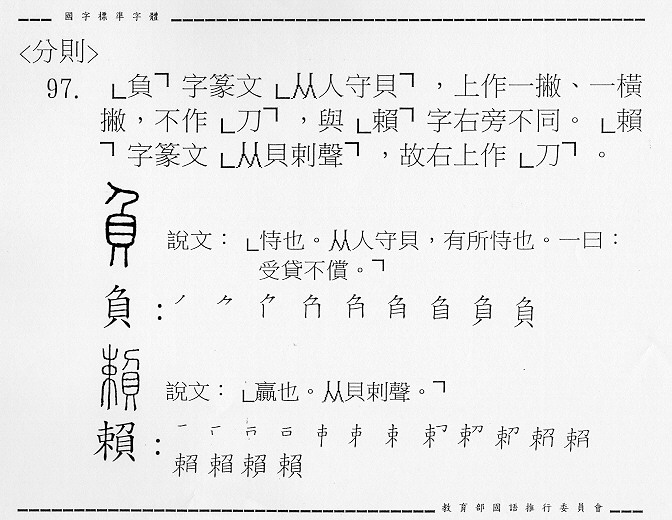 國字標準字體
<分則>
97. 「負」字篆文「从人守貝」，上作一撇、一橫
撇，不作「刀」，與「賴」字右旁不同。「賴
」字篆文「从貝剌聲」，故右上作「刀」。
負 說文：「恃也。从人守貝，有所恃也。一曰：
受貸不償。」
負：
賴 說文：「贏也。从貝剌聲。」
賴：
教育部國語推行委員會